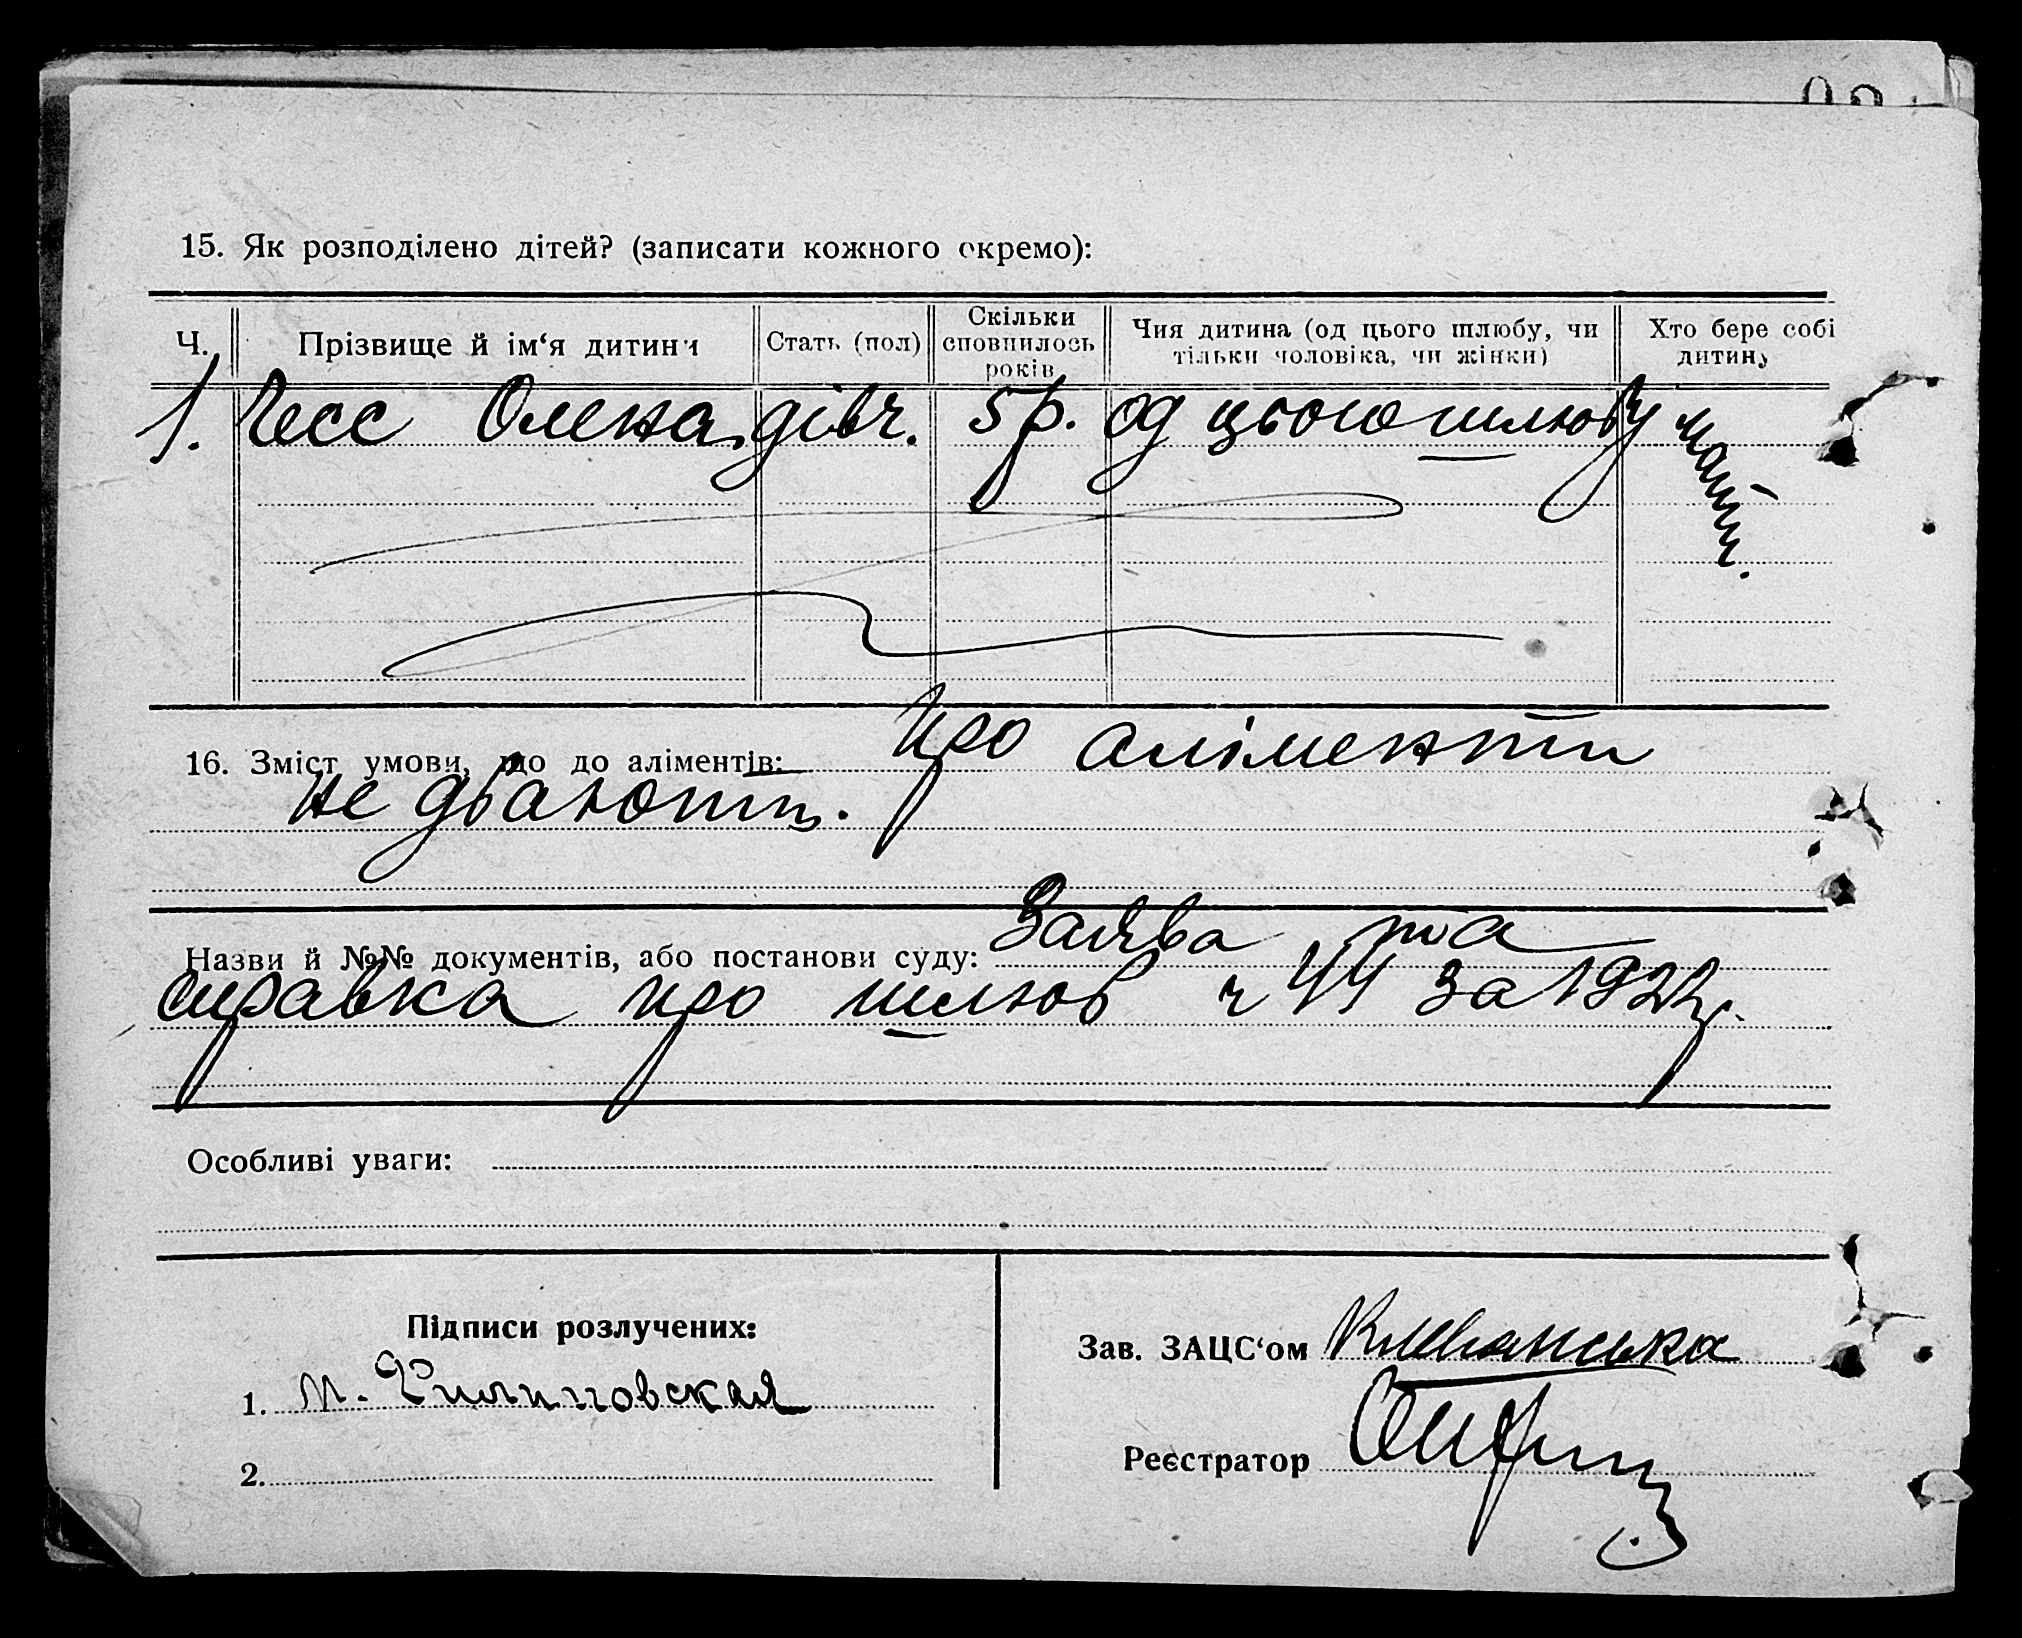 15. Як розподілено дітей? (записати кожного окремо):
Ч.
Прізвище й ім‘я дитини
Стать (пол)
Скільки сповнилось років
Чия дитина (од цього шлюбу, чи тільки чоловіка, чи жінки)
Хто бере собі дитину
1. Гесс Олена дівч. 5 р. од цього шлюбу мати.
16. Зміст умови, що до аліментів: Про аліменти
не дбають.
Назви й №№ документів, або постанови суду: Заява та
справка про шлюб ч 44 за 1922 р.
Особливі уваги:
Підписи розлучених:
1. М. Филипповская
2.
Зав. ЗАЦС‘ом
Реєстратор